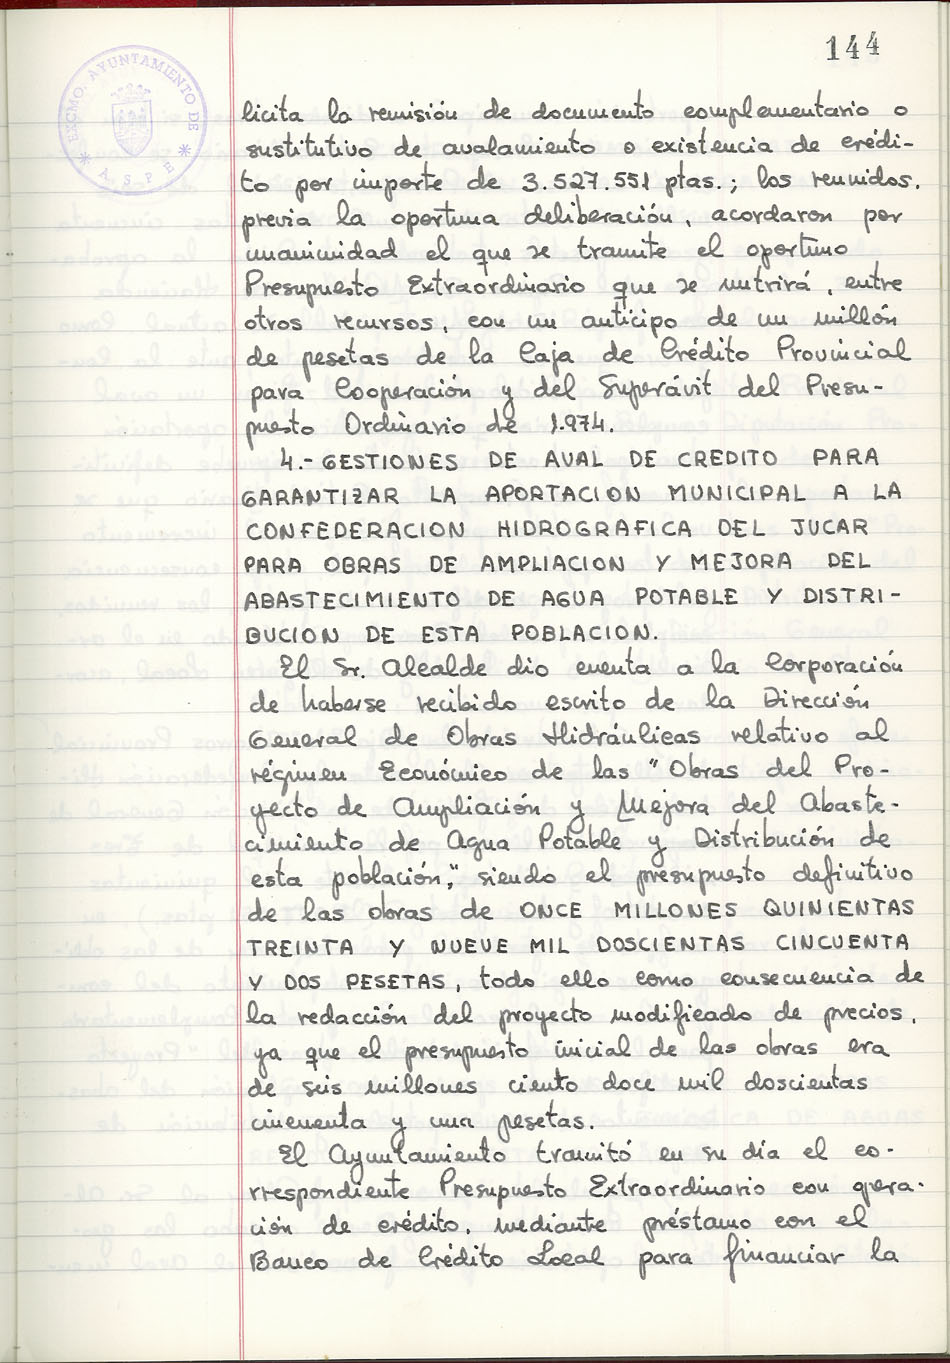 144
EXCMO. AYUNTAMIENTO DE
* ASPE *
licita la remisión de documento complementario o
sustitutivo de avalamiento o existencia de crédi-
to por importe de 3.527.551 ptas.; los reunidos,
previa la oportuna deliberación, acordaron por
unanimidad el que se tramite el oportuno
Presupuesto Extraordinario que se nutrirá, entre
otros recursos, con un anticipo de un millón
de pesetas de la Caja de Crédito Provincial
para Cooperación y del Superávit del Presu-
puesto Ordinario de 1.974.
4.- GESTIONES DE AVAL DE CREDITO PARA
GARANTIZAR LA APORTACION MUNICIPAL A LA
CONFEDERACION HIDROGRAFICA DEL JUCAR
PARA OBRAS DE AMPLIACION Y MEJORA DEL
ABASTECIMIENTO DE AGUA POTABLE Y DISTRI-
BUCION DE ESTA POBLACION.
El Sr. Alcalde dio cuenta a la Corporación
de haberse recibido escrito de la Dirección
General de Obras Hidráulicas relativo al
régimen Económico de las "Obras del Pro-
yecto de Ampliación y Mejora del Abaste-
cimiento de Agua Potable y Distribución de
esta población", siendo el presupuesto definitivo
de las obras de ONCE MILLONES QUINIENTAS
TREINTA Y NUEVE MIL DOSCIENTAS CINCUENTA
Y DOS PESETAS, todo ello como consecuencia de
la redacción del proyecto modificado de precios,
ya que el presupuesto inicial de las obras era
de seis millones ciento doce mil doscientas
cincuenta y una pesetas.
El Ayuntamiento tramitó en su día el co-
rrespondiente Presupuesto Extraordinario con opera-
ción de crédito, mediante préstamo con el
Banco de Crédito Local para financiar la